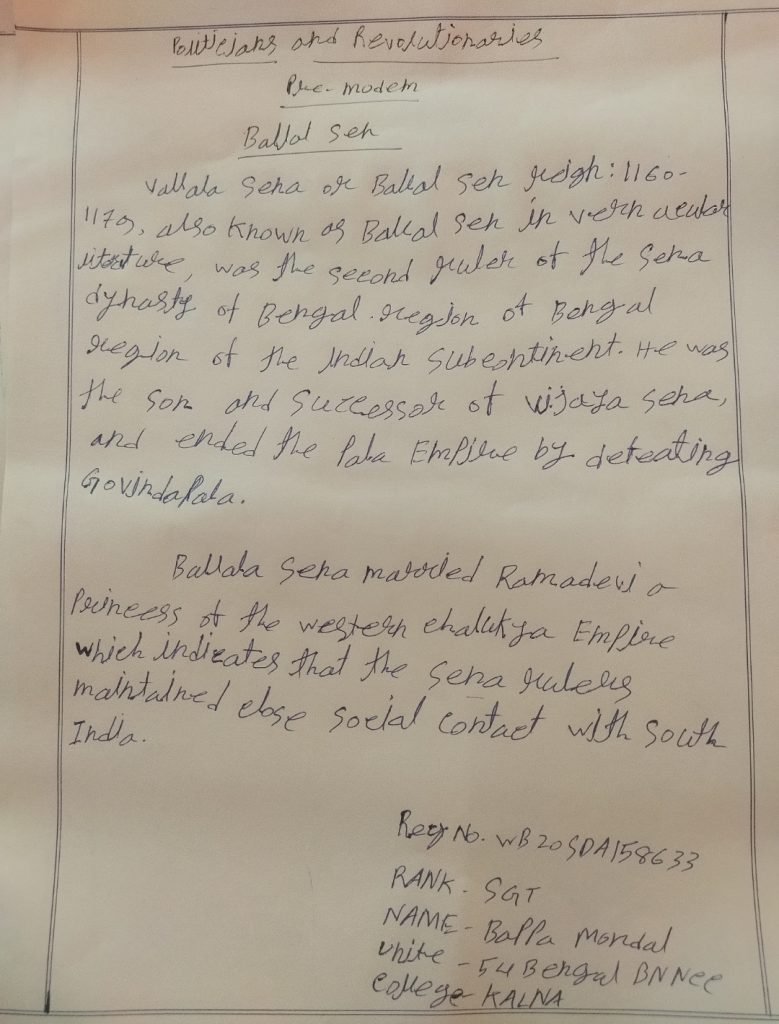 Politicians and Revolutionaries
Pre-modern
Ballal Sen
Vallala Sena or Ballal Sen reign: 1160-
1179, also known as Ballal Sen in vernacular
literature, was the second ruler of the Sena
dynasty of Bengal region of Bengal
region of the Indian subcontinent. He was
the son and successor of Vijaya Sena,
and ended the Pala Empire by defeating
Govindapala.
Ballala Sena married Ramadevi a
Princess of the western chalukya Empire
which indicates that the Sena rulers
maintained close social contact with South
India.
Reg No. WB20SDA158633
RANK - SGT
NAME - Bappa Mondal
Unite - 54 Bengal BN Ncc
College - KALNA